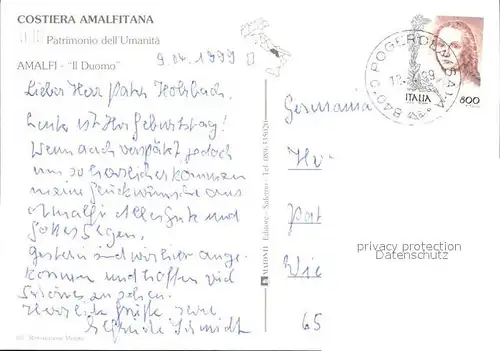 COSTIERA AMALFITANA
Patrimonio dell'Umanità
AMALFI - "Il Duomo"
9.04.1999
Lieber Herr Pater Holzbach,
heute ist Ihr Geburtstag!
Wenn auch verspätet jedoch
um so herzlicher kommen
meine Glückwünsche aus
Amalfi Alles Gute und
Gottes Segen.
Gestern sind wir hier ange-
kommen und hoffen viel
Schönes zu sehen.
Herzliche Grüße Ihre
Schmidt
Germania
ITALIA
800
privacy protection
Datenschutz
Wie
65